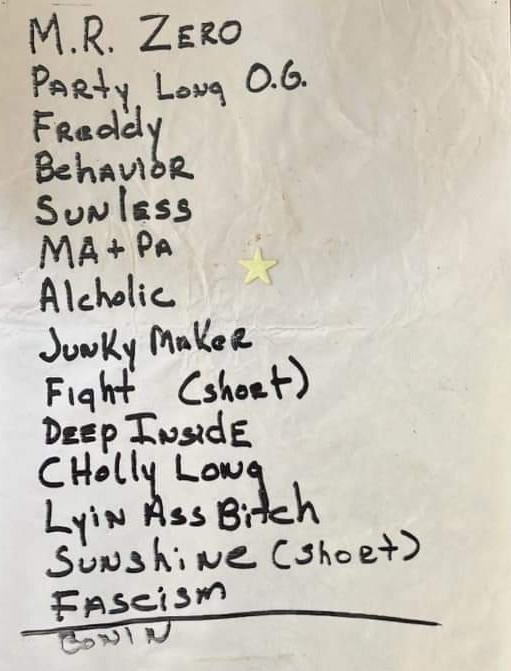 M.R. ZERO
PARty LONg O.G.
FReddy
BehAVIOR
SUNlESS
MA + PA
Alcholic
JUNKy MAKeR
Fight (shoRt)
DEEP INsidE
CHolly LONg
LyiN Ass Bitch
SUNshiNe (shoRt)
FAScism